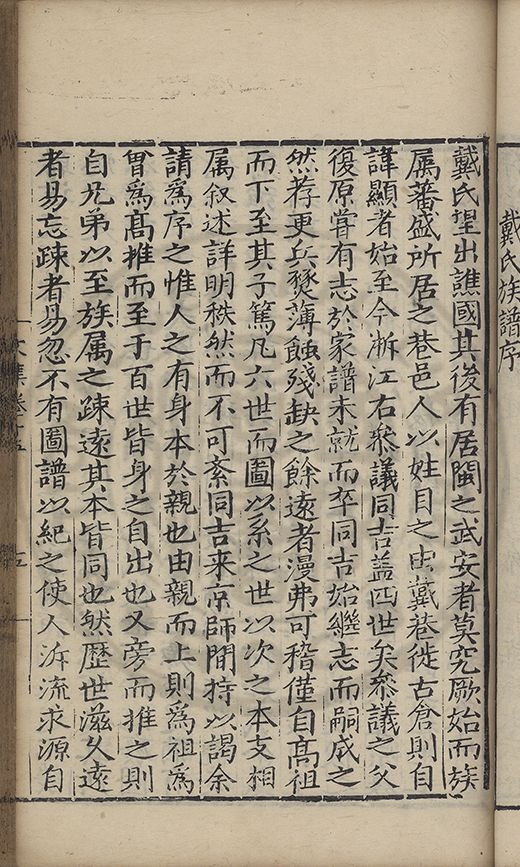 戴氏族譜序
戴氏望出譙國其後有居閩之武安者莫究厥始而族
属蕃盛所居之巷邑人以姓目之曰戴巷徙古倉則自
諱顯者始至今浙江右叅議同吉盖四世矣叅議之父
復原甞有志於家譜未就而卒同吉始繼志而嗣成之
然荐更兵燹薄蝕殘缺之餘遠者漫弗可稽僅自髙祖
而下至其子篤凡六世而圖以系之世以次之本支相
属叙述詳明秩然而不可紊同吉来京師間持以謁余
請為序之惟人之有身本於親也由親而上則為祖為
曽為髙推而至于百世皆身之自出也又旁而推之則
自兄弟以至族属之疎遠其本皆同也然歴世滋乆遠
者易忘疎者易忽不有圖譜以紀之使人泝流求源自